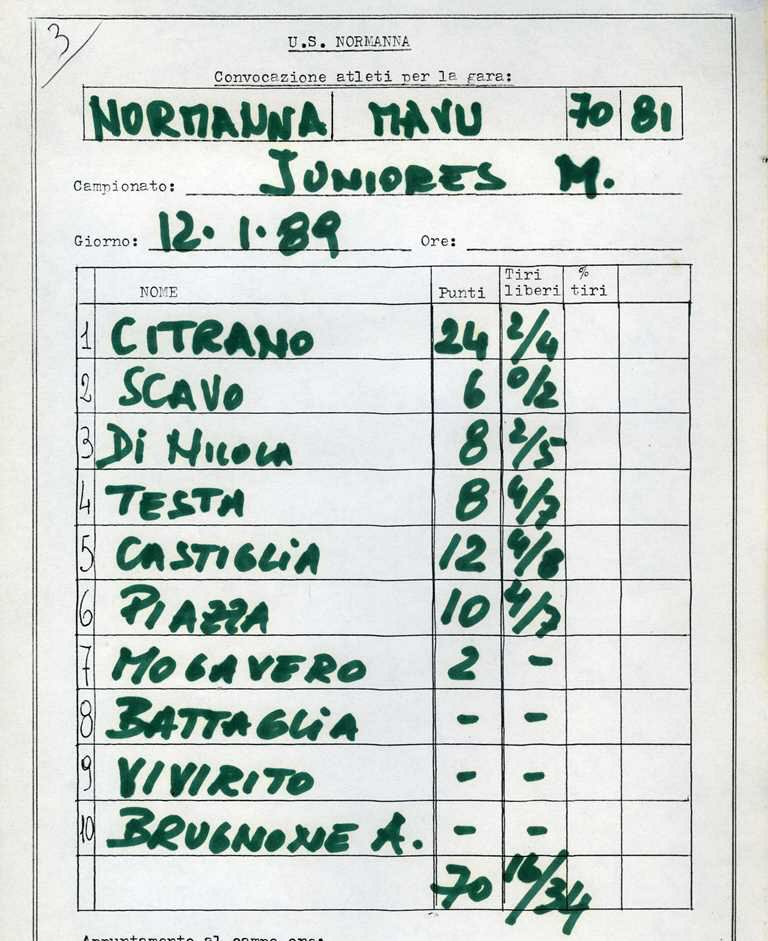 3
U.S. NORMANNA
Convocazione atleti per la gara:
NORMANNA MAVU 70 81
Campionato: JUNIORES M.
Giorno: 12.1.89 Ore:
NOME Punti Tiri liberi % tiri
1 CITRANO 24 2/4
2 SCAVO 6 0/2
3 Di NICOLA 8 2/5
4 TESTA 8 4/7
5 CASTIGLiA 12 4/8
6 PIAZZA 10 4/7
7 MOGAVERO 2 -
8 BATTAGLiA - -
9 VIVIRITO - -
10 BRUGNONE A. - -
70 16/34
Appuntamento al campo ore: